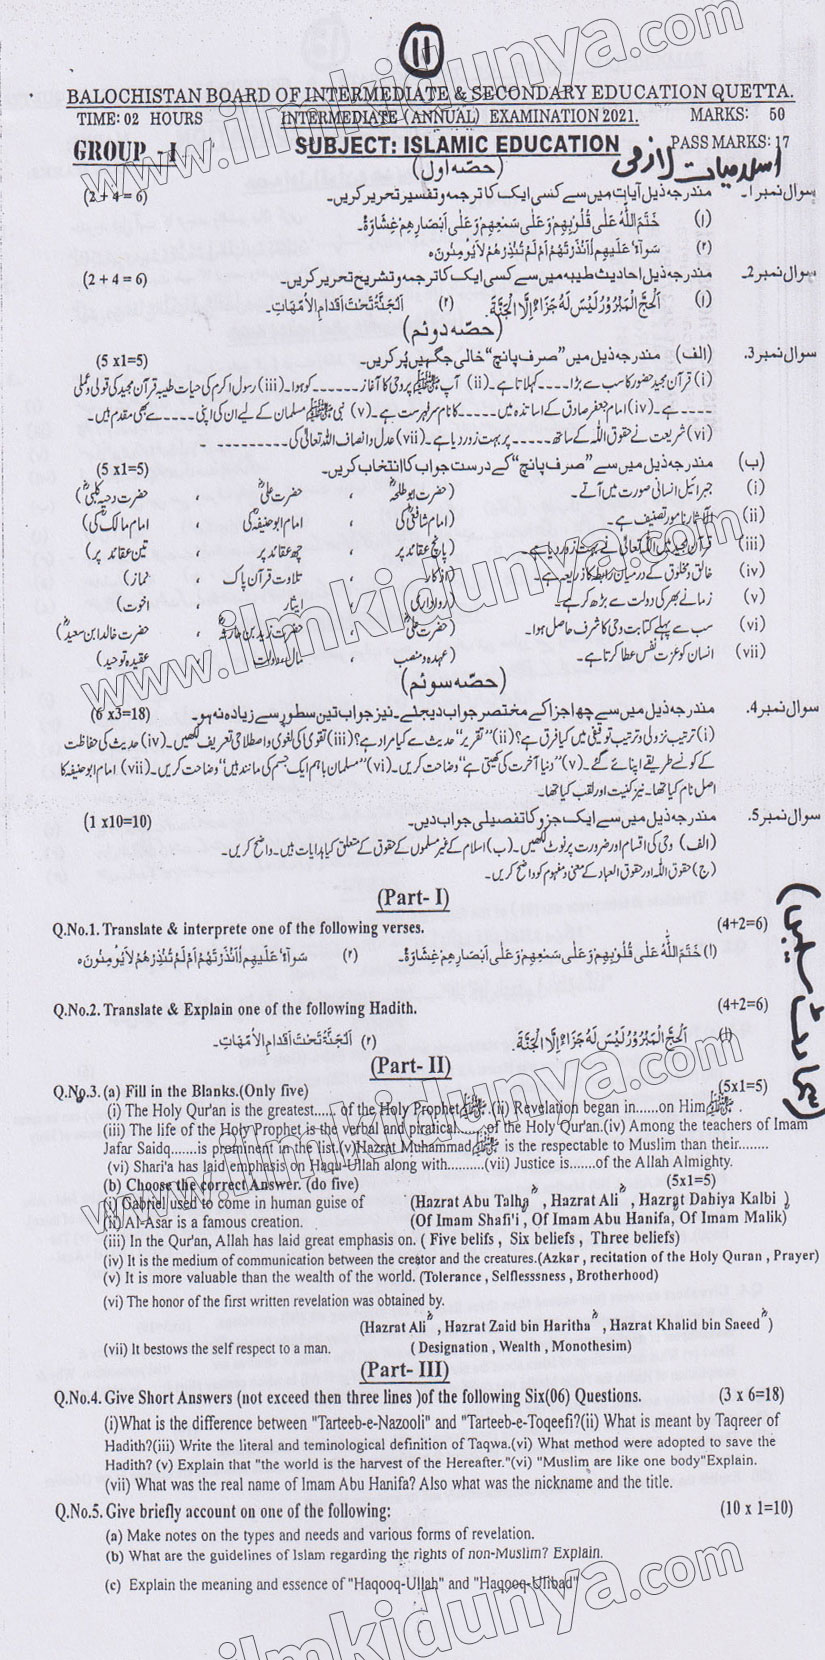 11
BALOCHISTAN BOARD OF INTERMEDIATE & SECONDARY EDUCATION QUETTA.
TIME: 02 HOURS INTERMEDIATE (ANNUAL) EXAMINATION 2021. MARKS: 50
GROUP - I SUBJECT: ISLAMIC EDUCATION PASS MARKS: 17
اسلامیات لازمی
(حصہ اول)
سوال نمبر 1۔ مندرجہ ذیل آیات میں سے کسی ایک کا ترجمہ و تفسیر تحریر کریں۔ (2 + 4 = 6)
(۱) خَتَمَ اللّٰهُ عَلٰى قُلُوْبِهِمْ وَعَلٰى سَمْعِهِمْ وَعَلٰى اَبْصَارِهِمْ غِشَاوَةٌ۔
(۲) سَوَآءٌ عَلَيْهِمْ ءَاَنْذَرْتَهُمْ اَمْ لَمْ تُنْذِرْهُمْ لَا يُؤْمِنُوْنَ ہ
سوال نمبر 2۔ مندرجہ ذیل احادیث طیبہ میں سے کسی ایک کا ترجمہ و تشریح تحریر کریں۔ (2 + 4 = 6)
(۱) اَلْحَجُّ الْمَبْرُوْرُ لَيْسَ لَهٗ جَزَاءٌ اِلَّا الْجَنَّةَ۔ (۲) اَلْجَنَّةُ تَحْتَ اَقْدَامِ الْاُمَّهَاتِ۔
(حصہ دوئم)
سوال نمبر 3۔ (الف) مندرجہ ذیل میں "صرف پانچ" خالی جگہیں پُر کریں۔ (5 x1=5)
(i) قرآن مجید حضور کا سب سے بڑا ۔۔۔۔ کہلاتا ہے۔ (ii) آپ ﷺ پر وحی کا آغاز ۔۔۔۔۔۔ کو ہوا۔ (iii) رسول اکرم کی حیات طیبہ قرآن مجید کی قولی و عملی
۔۔۔۔ ہے۔ (iv) امام جعفر صادق کے اساتذہ میں ۔۔۔۔۔ کا نام سرفہرست ہے۔ (v) نبی ﷺ مسلمان کے لیے ان کی اپنی ۔۔۔۔ سے بھی مقدم ہیں۔
(vi) شریعت نے حقوق اللہ کے ساتھ ۔۔۔۔۔ پر بہت زور دیا ہے۔ (vii) عدل و انصاف اللہ تعالیٰ کی ۔۔۔۔۔۔۔۔
(ب) مندرجہ ذیل میں سے "صرف پانچ" کے درست جواب کا انتخاب کریں۔ (5 x1=5)
(i) جبرائیل انسانی صورت میں آتے۔ (حضرت ابو طلحہؓ ، حضرت علیؓ ، حضرت دحیہ کلبیؓ)
(ii) الآثار نامور تصنیف ہے۔ (امام شافعیؒ کی ، امام ابو حنیفہؒ کی ، امام مالکؒ کی)
(iii) قرآن مجید میں اللہ تعالیٰ نے بہت زور دیا ہے۔ (پانچ عقائد پر ، چھ عقائد پر ، تین عقائد پر)
(iv) خالق و مخلوق کے درمیان رابطہ کا ذریعہ ہے۔ (اذکار ، تلاوت قرآن پاک ، نماز)
(v) زمانے بھر کی دولت سے بڑھ کر ہے۔ (رواداری ، ایثار ، اخوت)
(vi) سب سے پہلے کتابت وحی کا شرف حاصل ہوا۔ (حضرت علیؓ ، حضرت زید بن حارثہؓ ، حضرت خالد ابن سعیدؓ)
(vii) انسان کو عزت نفس عطا کرتا ہے۔ (عہدہ و منصب ، مال و دولت ، عقیدہ توحید)
(حصہ سوئم)
سوال نمبر 4۔ مندرجہ ذیل میں سے چھ اجزا کے مختصر جواب دیجئے۔ نیز جواب تین سطور سے زیادہ نہ ہو۔ (6 x3=18)
(i) ترتیب نزولی و ترتیب توقیفی میں کیا فرق ہے؟ (ii) "تقریر" حدیث سے کیا مراد ہے؟ (iii) تقویٰ کی لغوی و اصطلاحی تعریف لکھیں۔ (iv) حدیث کی حفاظت
کے کونسے طریقے اپنائے گئے۔ (v) "دنیا آخرت کی کھیتی ہے" وضاحت کریں۔ (vi) "مسلمان باہم ایک جسم کی مانند ہیں" وضاحت کریں۔ (vii) امام ابو حنیفہ کا
اصل نام کیا تھا۔ نیز کنیت اور لقب کیا تھا۔
سوال نمبر 5۔ مندرجہ ذیل میں سے ایک جزو کا تفصیلی جواب دیں۔ (1 x10=10)
(الف) وحی کی اقسام اور ضرورت پر نوٹ لکھیں۔ (ب) اسلام کے غیر مسلموں کے حقوق کے متعلق کیا ہدایات ہیں۔ واضح کریں۔
(ج) حقوق اللہ اور حقوق العباد کے معنی و مفہوم کو واضح کریں۔
(Part- I)
Q.No.1. Translate & interprete one of the following verses. (4+2=6)
(۱) خَتَمَ اللّٰهُ عَلٰى قُلُوْبِهِمْ وَعَلٰى سَمْعِهِمْ وَعَلٰى اَبْصَارِهِمْ غِشَاوَةٌ۔ (۲) سَوَآءٌ عَلَيْهِمْ ءَاَنْذَرْتَهُمْ اَمْ لَمْ تُنْذِرْهُمْ لَا يُؤْمِنُوْنَ ہ
Q.No.2. Translate & Explain one of the following Hadith. (4+2=6)
(۱) اَلْحَجُّ الْمَبْرُوْرُ لَيْسَ لَهٗ جَزَاءٌ اِلَّا الْجَنَّةَ۔ (۲) اَلْجَنَّةُ تَحْتَ اَقْدَامِ الْاُمَّهَاتِ۔
(Part- II)
Q.No.3. (a) Fill in the Blanks.(Only five) (5x1=5)
(i) The Holy Qur'an is the greatest...... of the Holy Prophet ﷺ.(ii) Revelation began in......on Him ﷺ .
(iii) The life of the Holy Prophet is the verbal and piratical......of the Holy Qur'an.(iv) Among the teachers of Imam
Jafar Saidq.......is prominent in the list.(v)Hazrat Muhammad ﷺ is the respectable to Muslim than their........
(vi) Shari'a has laid emphasis on Haqu-Ullah along with..........(vii) Justice is.......of the Allah Almighty.
(b) Choose the correct Answer. (do five) (5x1=5)
(i) Gabriel used to come in human guise of (Hazrat Abu Talhaؓ , Hazrat Aliؓ , Hazrat Dahiya Kalbiؓ )
(ii) Al-Asar is a famous creation. (Of Imam Shafi'i , Of Imam Abu Hanifa, Of Imam Malik)
(iii) In the Qur'an, Allah has laid great emphasis on. ( Five belifs , Six beliefs , Three beliefs)
(iv) It is the medium of communication between the creator and the creatures.(Azkar , recitation of the Holy Quran , Prayer)
(v) It is more valuable than the wealth of the world. (Tolerance , Selflesssness , Brotherhood)
(vi) The honor of the first written revelation was obtained by.
(Hazrat Aliؓ , Hazrat Zaid bin Harithaؓ , Hazrat Khalid bin Saeedؓ )
(vii) It bestows the self respect to a man. ( Designation , Wealth , Monothesim)
(Part- III)
Q.No.4. Give Short Answers (not exceed then three lines )of the following Six(06) Questions. (3 x 6=18)
(i)What is the difference between "Tarteeb-e-Nazooli" and "Tarteeb-e-Toqeefi?(ii) What is meant by Taqreer of
Hadith?(iii) Write the literal and teminological definition of Taqwa.(vi) What method were adopted to save the
Hadith? (v) Explain that "the world is the harvest of the Hereafter."(vi) "Muslim are like one body"Explain.
(vii) What was the real name of Imam Abu Hanifa? Also what was the nickname and the title.
Q.No.5. Give briefly account on one of the following: (10 x 1=10)
(a) Make notes on the types and needs and various forms of revelation.
(b) What are the guidelines of Islam regarding the rights of non-Muslim? Explain.
(c) Explain the meaning and essence of "Haqooq-Ullah" and "Haqooq-Ulibad"
www.ilmkidunya.com
www.ilmkidunya.com
www.ilmkidunya.com
www.ilmkidunya.com
www.ilmkidunya.com
www.ilmkidunya.com